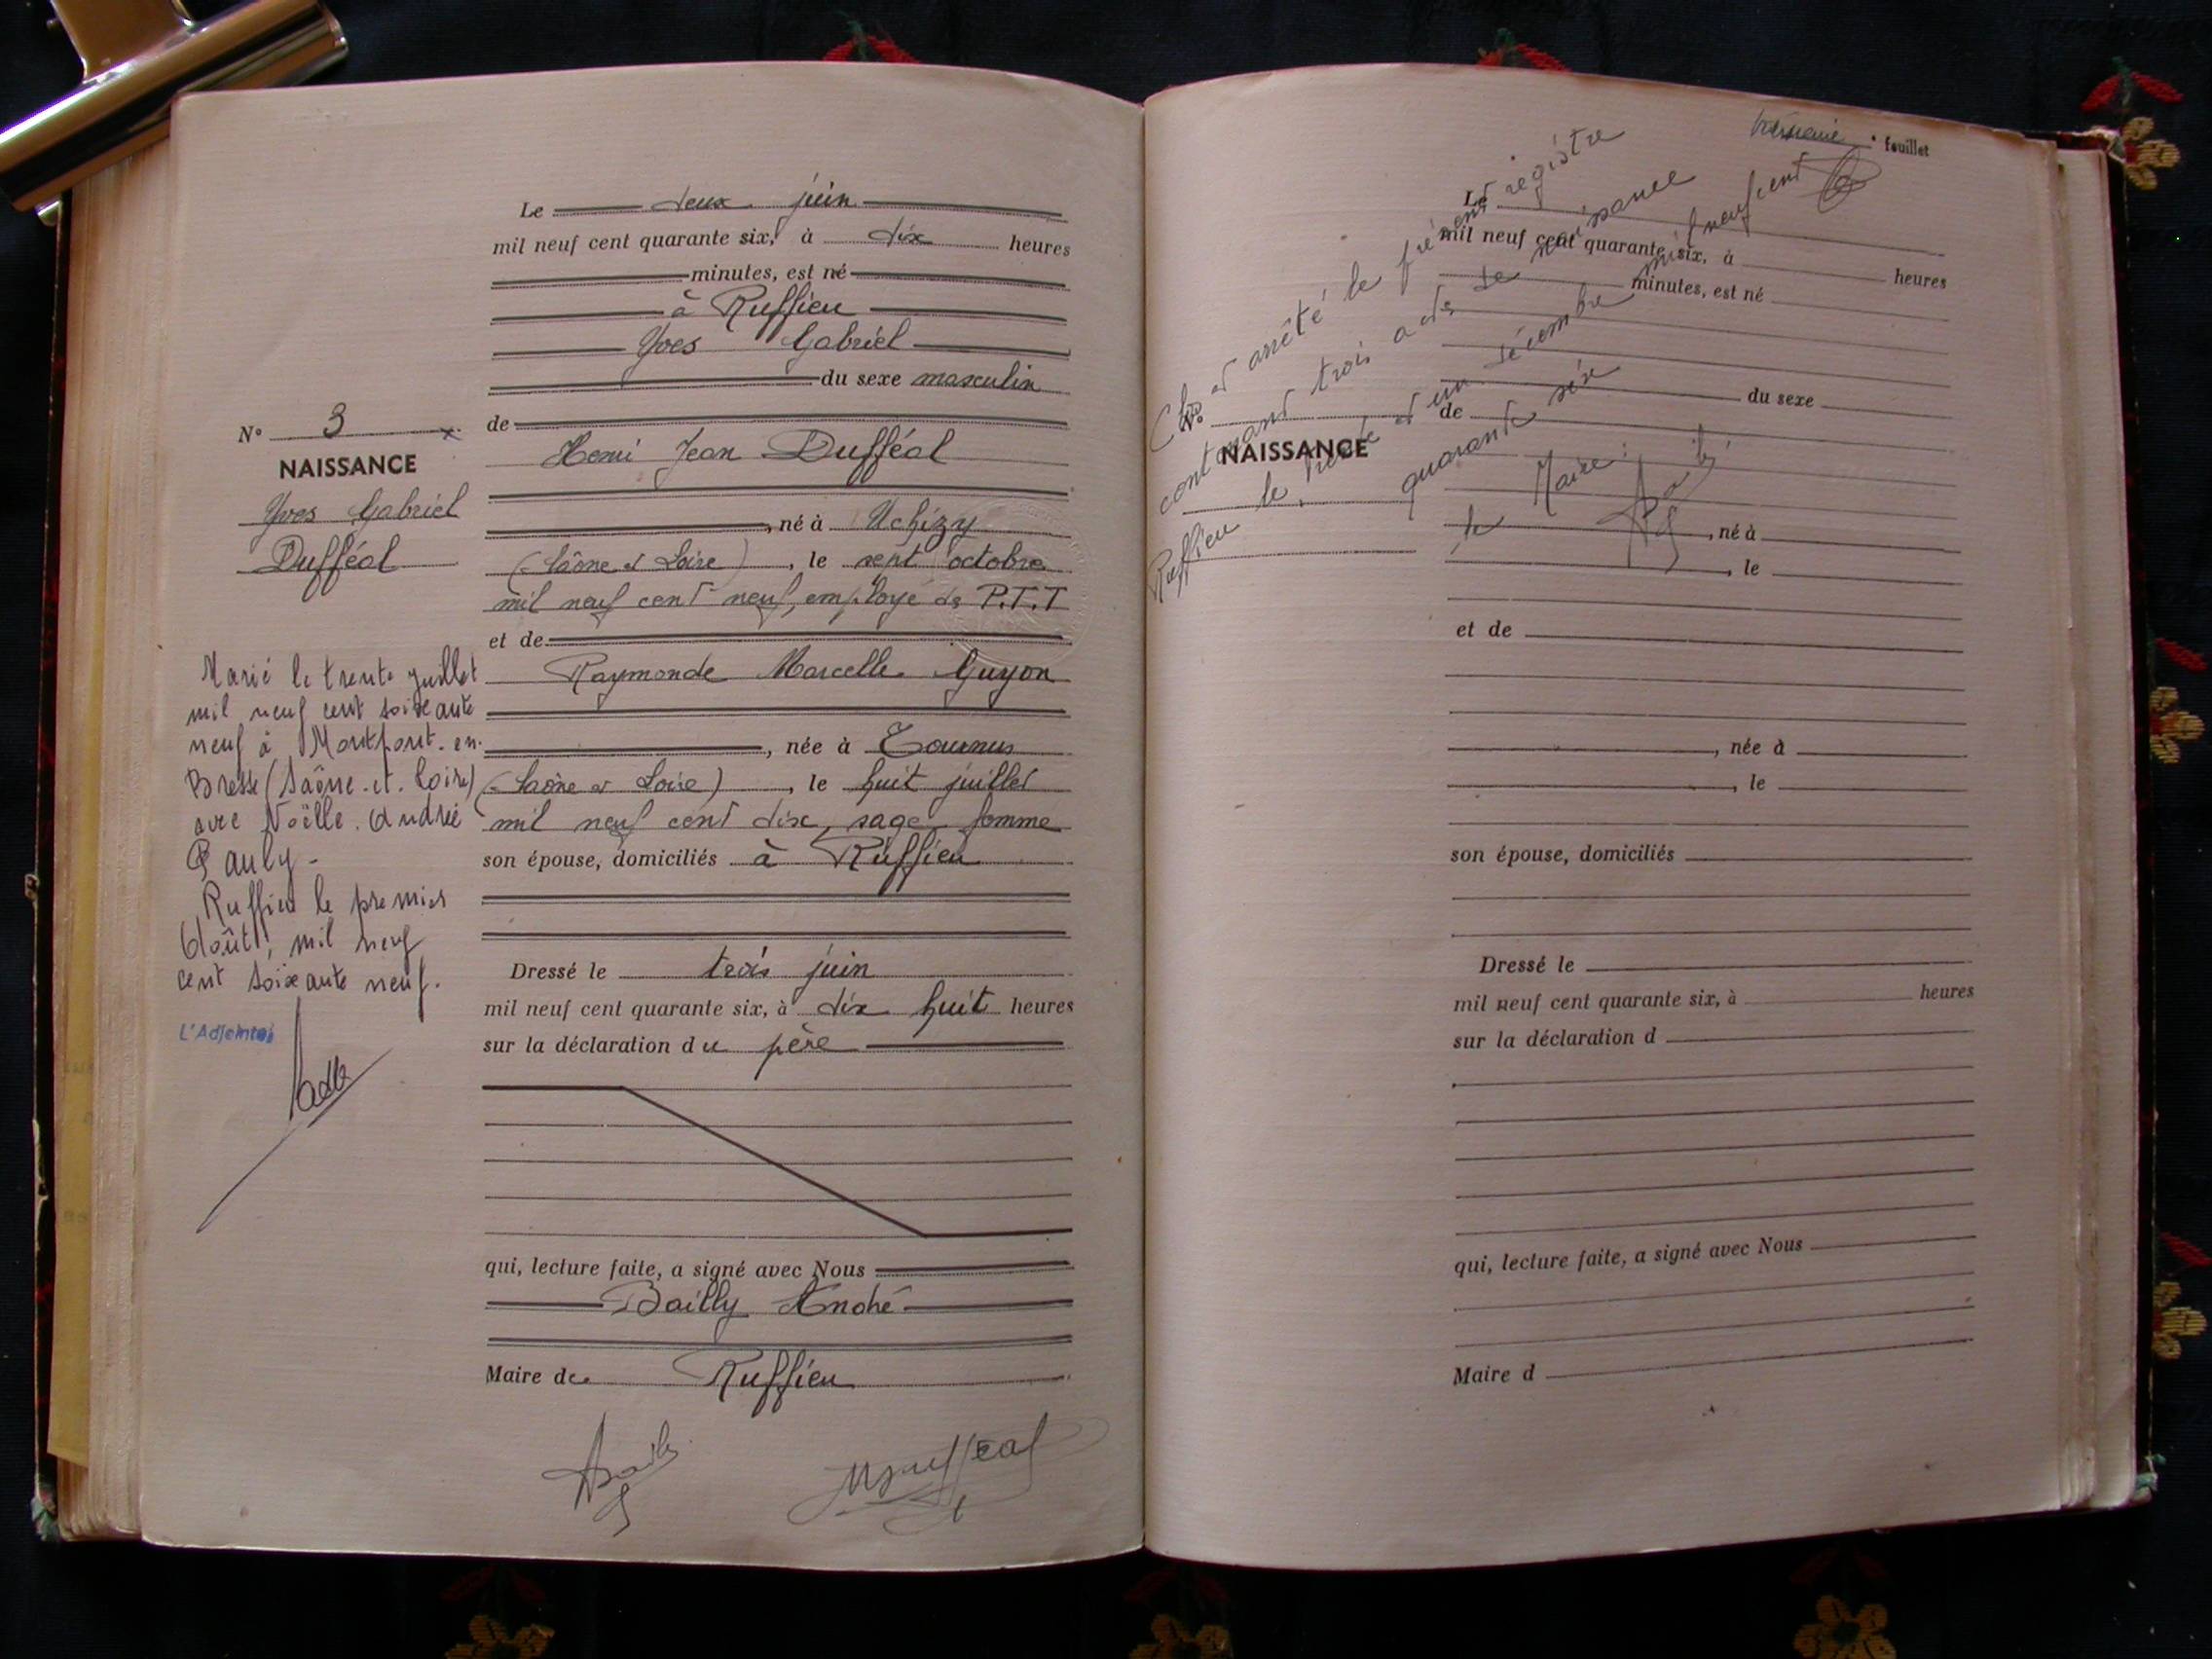 Le deux juin
mil neuf cent quarante six, à dix heures
minutes, est né
à Ruffieu
Yves Gabriel
du sexe masculin
de
Henri Jean Dufféal
, né à Uchizy
(Saône et Loire), le sept octobre
mil neuf cent neuf, employé de P.T.T
et de
Raymonde Marcelle Guyon
, née à Tournus
(Saône et Loire), le huit juillet
mil neuf cent dix, sage-femme
son épouse, domiciliés à Ruffieu
Dressé le trois juin
mil neuf cent quarante six, à dix huit heures
sur la déclaration du père
qui, lecture faite, a signé avec Nous
Bailly André
Maire de Ruffieu
N° 3
NAISSANCE
Yves Gabriel
Dufféal
Marié le trente juillet
mil neuf cent soixante
neuf à Montpont-en-
Bresse (Saône-et-Loire)
avec Noëlle Andrée
Pauly-
Ruffieu le premier
Août, mil neuf
cent soixante neuf.
L'Adjoint
feuillet
Clos et arrêté le présent registre
contenant trois acte de naissance
Ruffieu le trente et un décembre mil neuf cent
quarante six
le Maire:
Le
mil neuf cent quarante six, à heures
minutes, est né
du sexe
N°
NAISSANCE
de
, né à
, le
et de
, née à
, le
son épouse, domiciliés
Dressé le
mil neuf cent quarante six, à heures
sur la déclaration d
qui, lecture faite, a signé avec Nous
Maire d